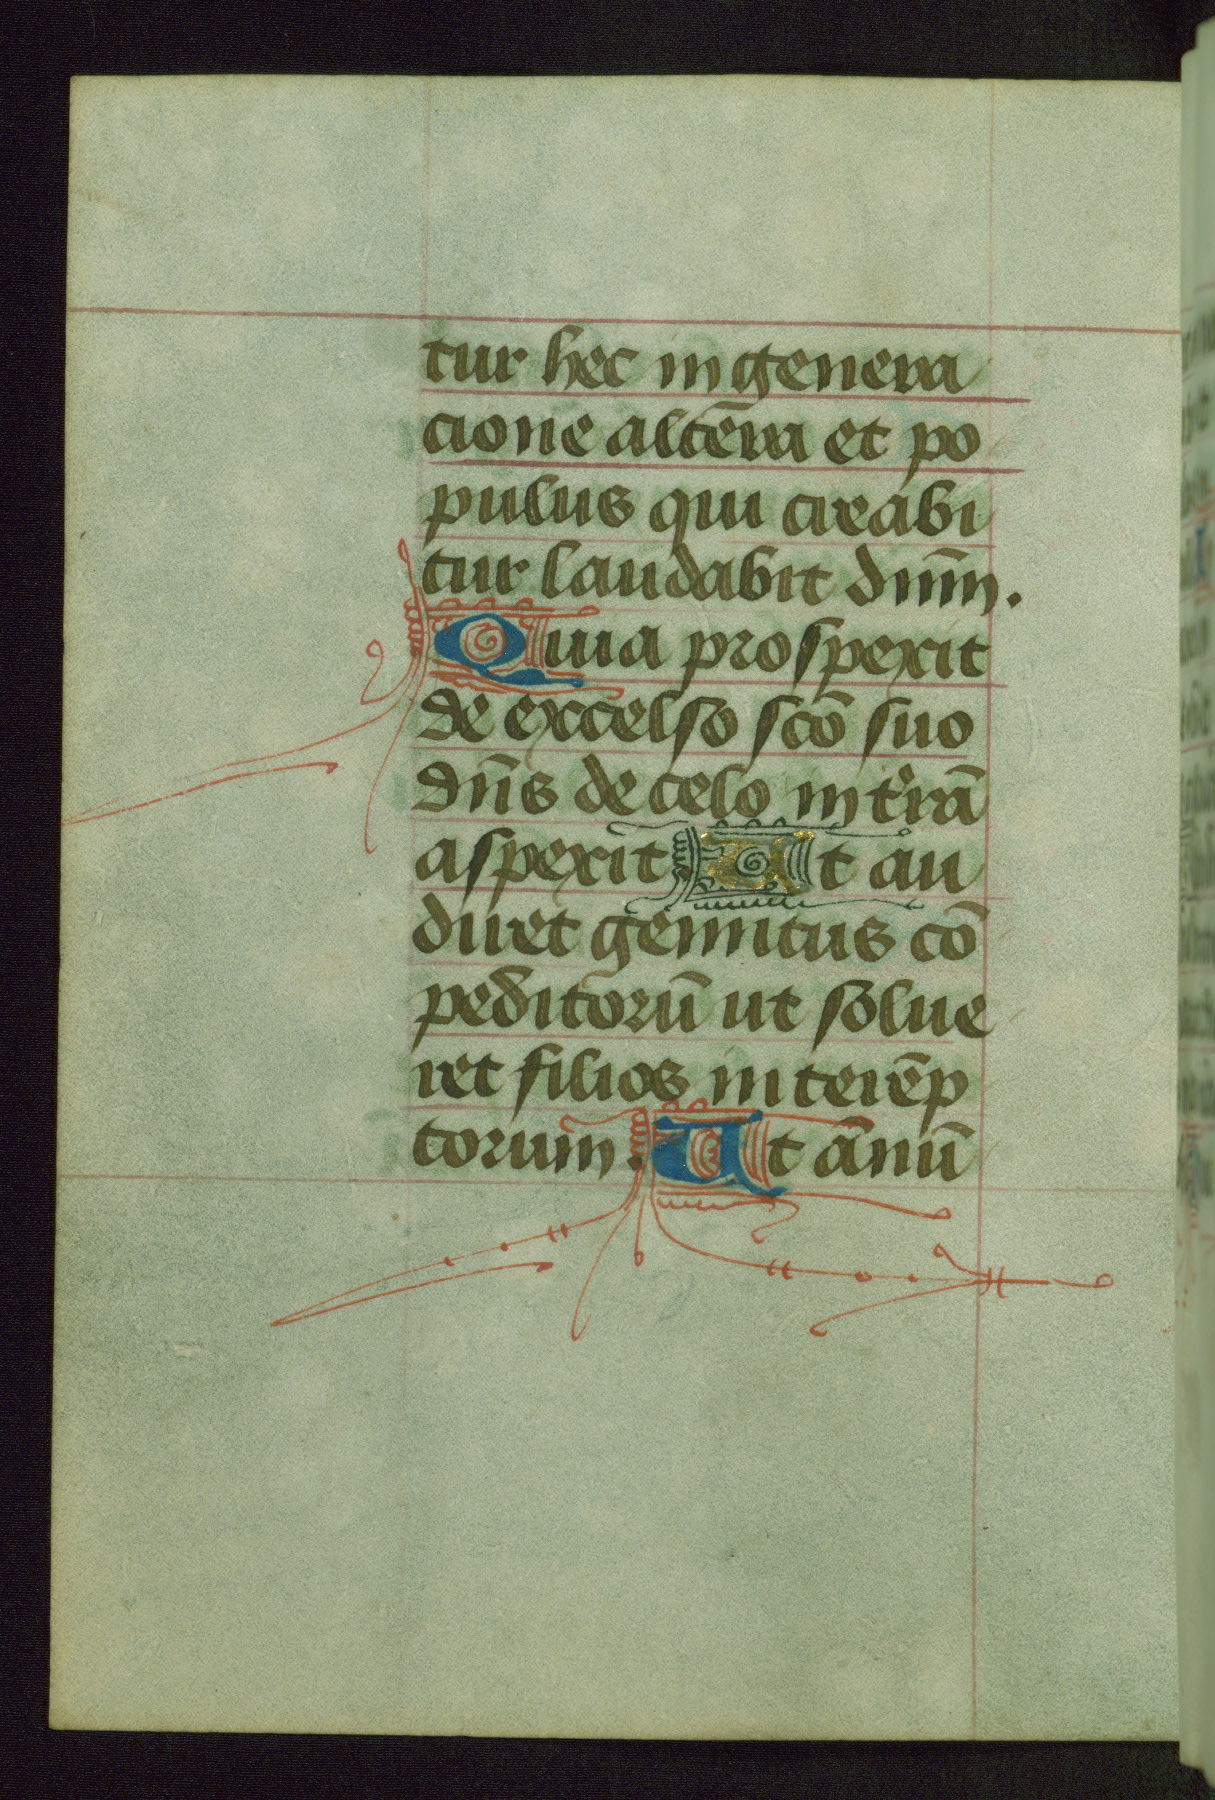 tur hec in genera
cione altera et po
pulus qui creabi
tur laudabit dnm̄.
Quia prospexit
de excelso scō suo
dn̄s de celo in t̄rā
aspexit Ut au
diret gemitus cō
peditorū ut solue
ret filios interēp
torum. Ut ānū